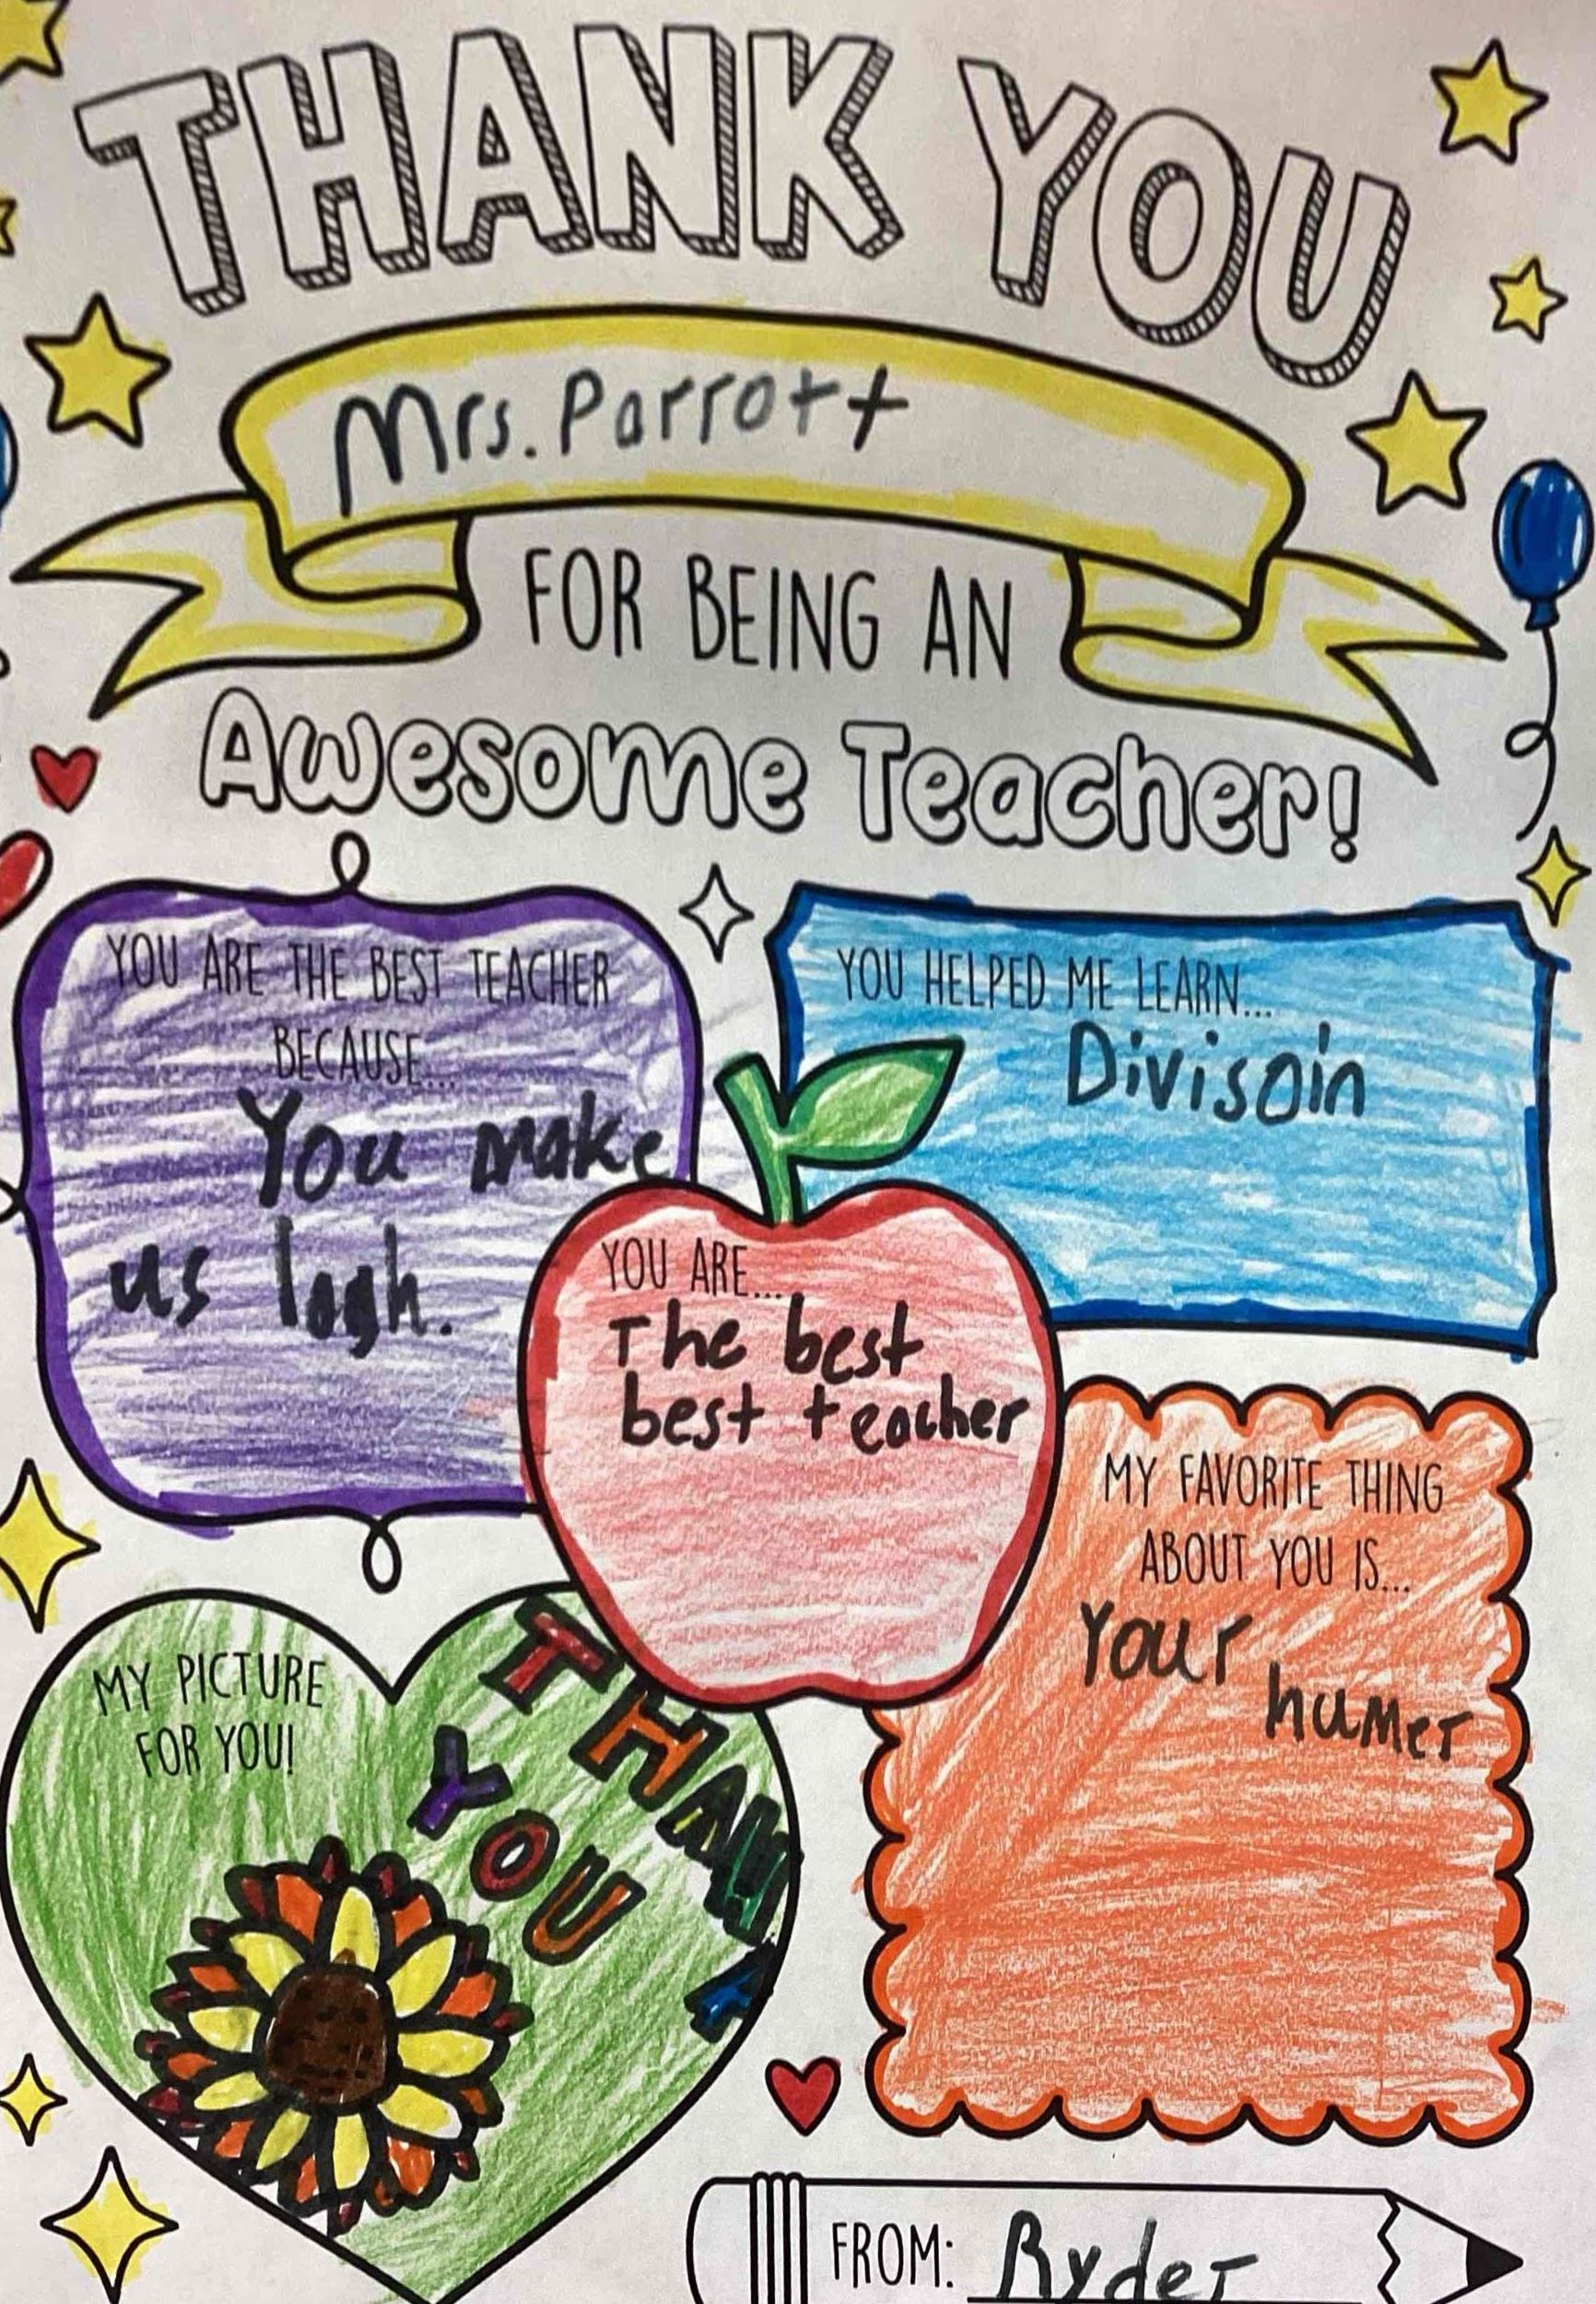 THANK YOU
Mrs. Parrott
FOR BEING AN
Awesome Teacher!
YOU ARE THE BEST TEACHER
BECAUSE...
You make
us logh.
YOU HELPED ME LEARN...
Divisoin
YOU ARE...
The best
best teacher
MY FAVORITE THING
ABOUT YOU IS...
Your
humer
MY PICTURE
FOR YOU!
THANK
YOU
FROM: Ryder